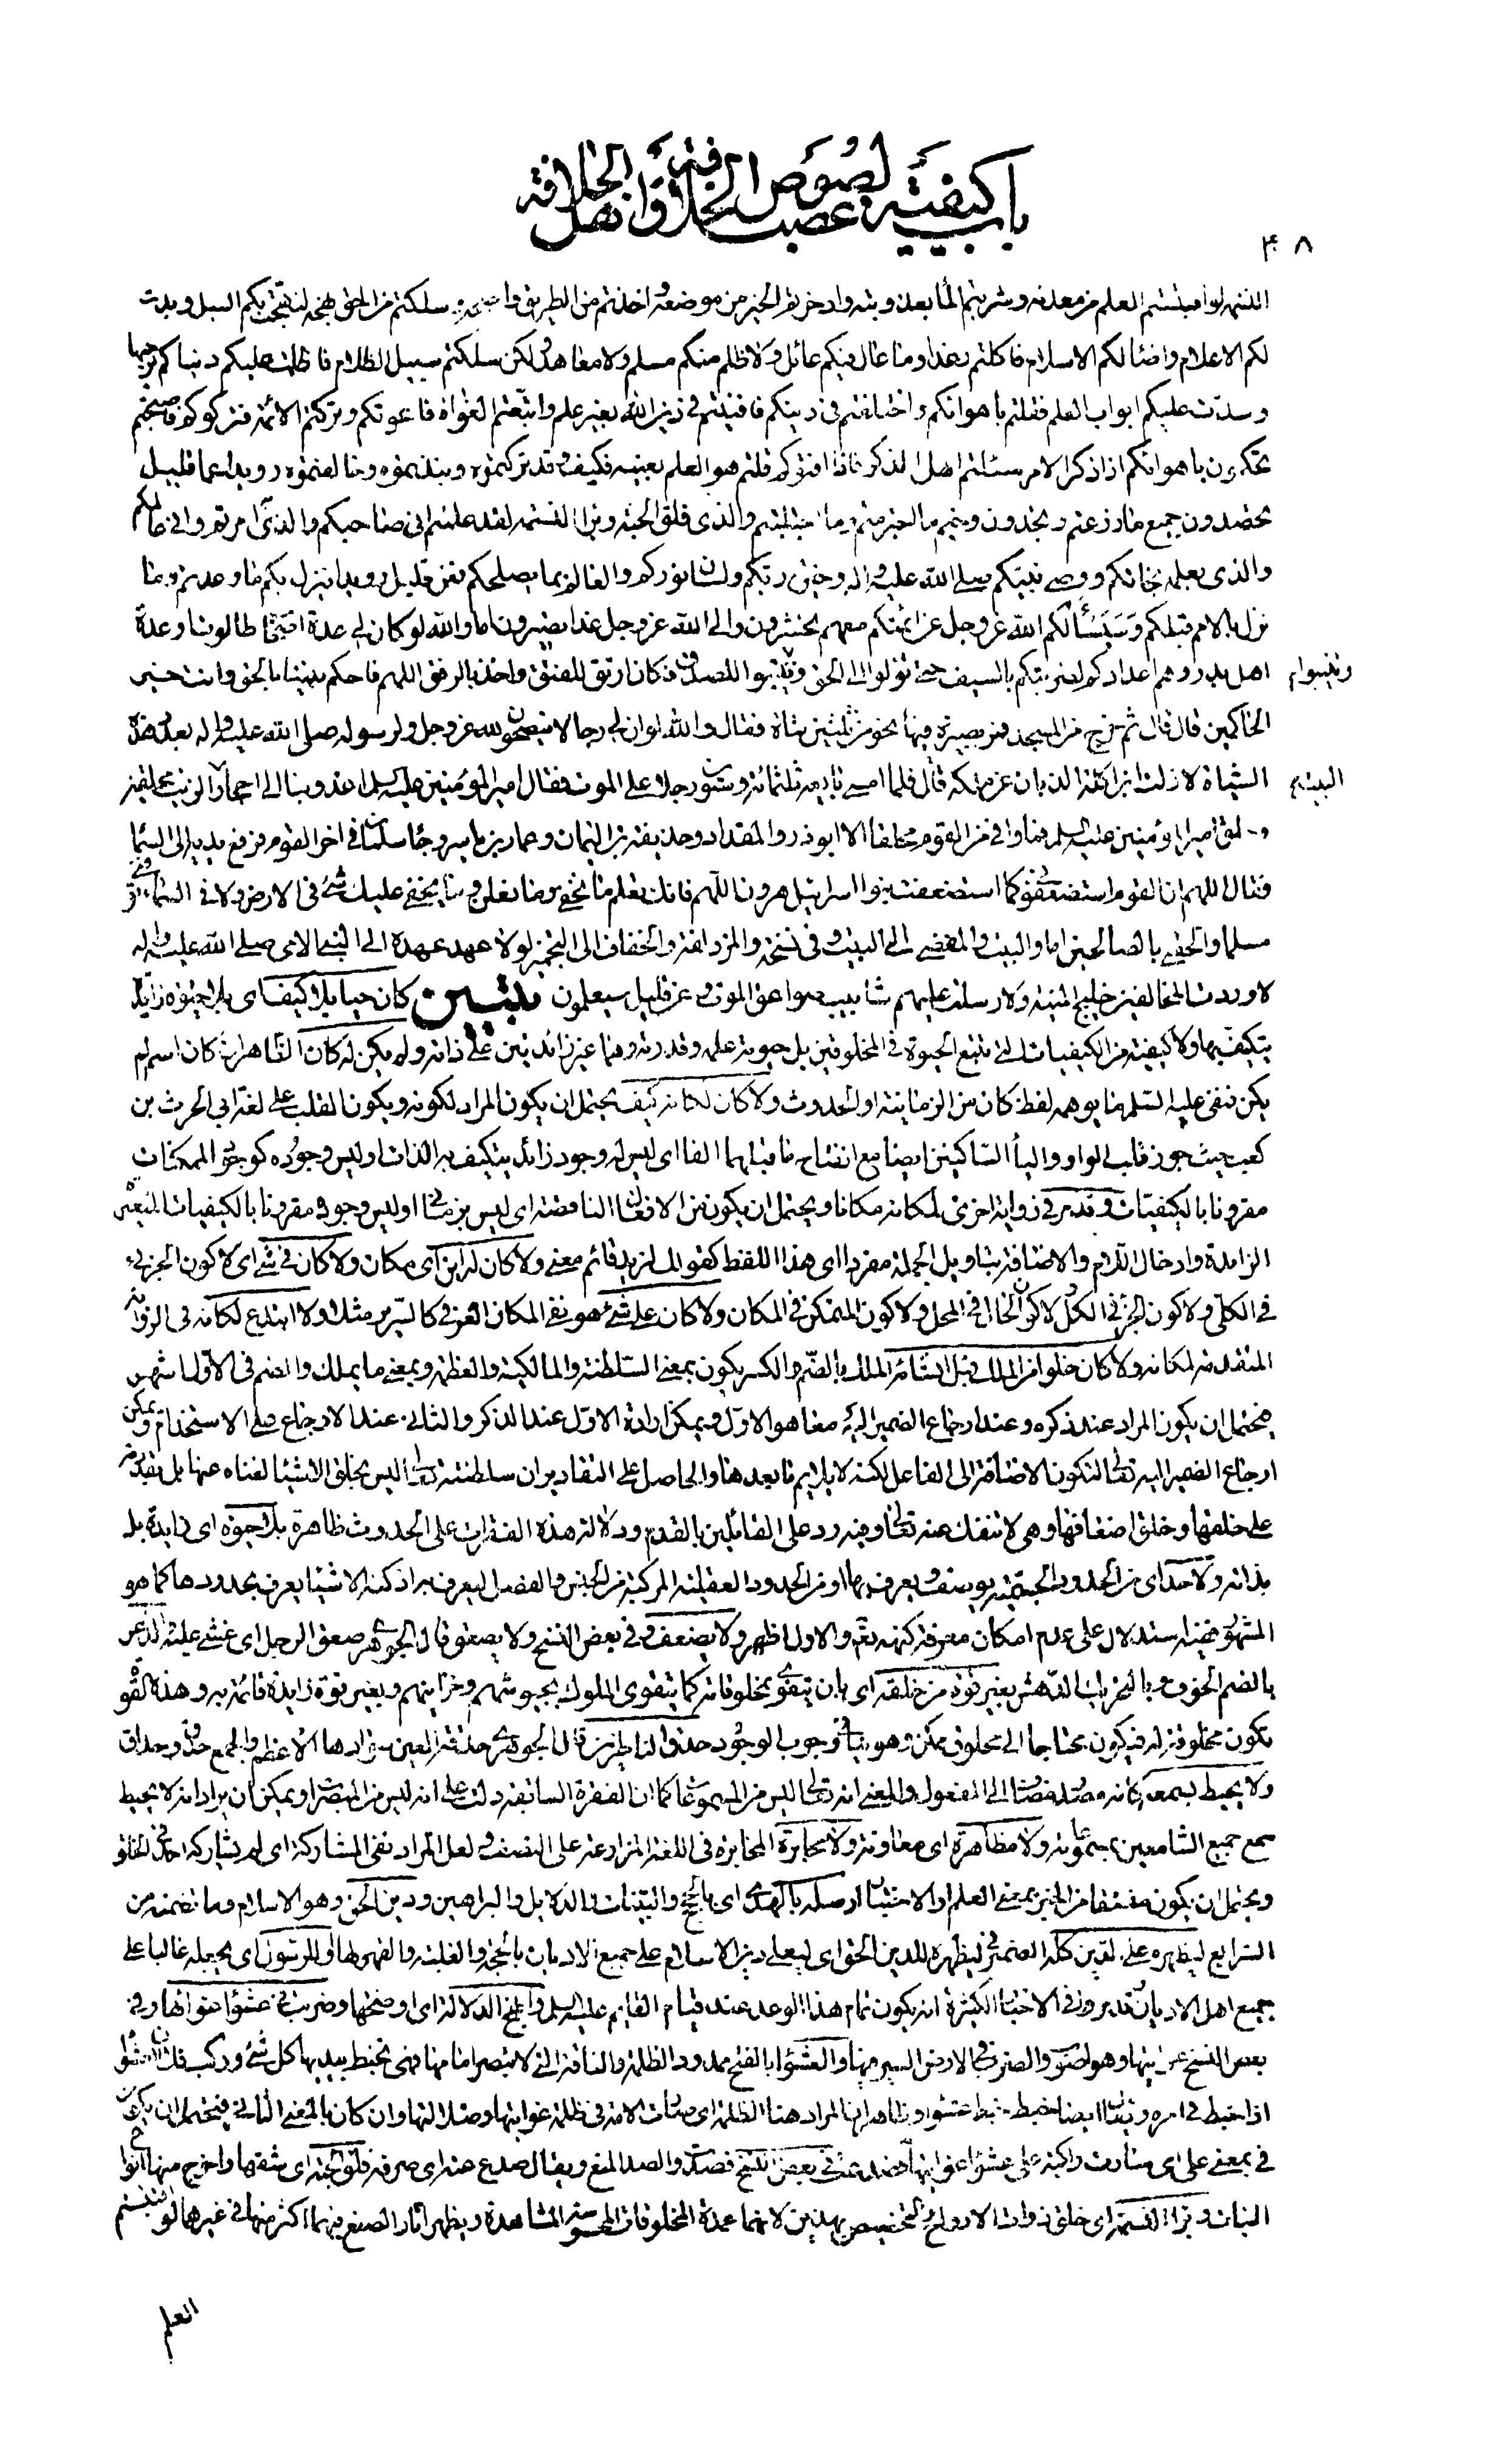 باب كيفية لصوص الخلافة
و غصب الخلافة واهل الخلافة
۴۸
النسمة لو اقتبستم العلم من معدنه وشربتم الماء بعذوبته وادخرتم الخير من موضعه واخذتم من الطريق واضحه وسلكتم من الحق نهجه لنهجت بكم السبل وبدت
لكم الاعلام واضاء لكم الاسلام فاكلتم رغدا وما عال فيكم عائل ولا ظلم منكم مسلم ولا معاهد ولكن سلكتم سبيل الظلام فاظلمت عليكم دنياكم برحبها
وسدت عليكم ابواب العلم فقلتم باهوائكم واختلفتم في دينكم فافتيتم في دين الله بغير علم واتبعتم الغواة فاغوتكم وتركتم الائمة فتركوكم فاصبحتم
تحكمون باهوائكم اذا ذكر الامر سئلتم اهل الذكر فاذا افتوكم قلتم هو العلم بعينه فكيف وقد تركتموه ونبذتموه وخالفتموه رويدا عما قليل
تحصدون جميع ما زرعتم وتجدون وخيم ما اجترمتم وما اجتلبتم والذي فلق الحبة وبرا النسمة لقد علمتم اني صاحبكم والذي به امرتم واني عالمكم
والذي بعلمه نجاتكم ووصي نبيكم صلى الله عليه واله وخيرة ربكم ولسان نوركم والعالم بما يصلحكم فعن قليل رويدا ينزل بكم ما وعدتم وما
نزل بالامم قبلكم وسيسألكم الله عز وجل عن ائمتكم معهم تحشرون والى الله عز وجل غدا تصيرون اما والله لو كان لي عدة اصحاب طالوت او عدة
اهل بدر وهم اعدادكم لضربتكم بالسيف حتى تؤلوا الى الحق وتنيبوا للصدق فكان ارتق للفتق واخذ بالرفق اللهم فاحكم بيننا بالحق وانت خير
وتنيبوا م
الحاكمين قال قال ثم خرج من المسجد فمر بصيرة فيها نحو من ثلثين شاة فقال والله لو ان لي رجالا ينصحون لله عز وجل ولرسوله صلى الله عليه واله بعدد هذه
الشياة لازلت ابن اكلة الذبان عن ملكه قال فلما امسى بايعه ثلثمائة وستون رجلا على الموت فقال امير المؤمنين عليه السلم اغدوا بنا الى احجار الزيت محلقين
وحلق امير المؤمنين عليه السلم فما وافى من القوم محلقا الا ابو ذر والمقداد وحذيفة بن اليمان وعمار بن ياسر وجاء سلمان في اخر القوم فرفع يديه الى السماء
فقال اللهم ان القوم استضعفوني كما استضعفت بنوا اسرائيل هرون اللهم فانك تعلم ما نخفي وما نعلن وما يخفى عليك شئ في الارض ولا في السماء توفني
مسلما والحقني بالصالحين اما والبيت والمفضي الى البيت وفي نسخة والمزدلفة والخفاف الى التجمير لولا عهد عهده الي النبي الامي صلى الله عليه واله
لاوردت المخالفين خليج المنية ولارسلت عليهم شابيب صواعق الموت وعن قليل سيعلمون تبيين كان حيا بلا كيف اي بلا حيوة زايدة
يتكيف بها ولا كيفية من الكيفيات التي تتبع الحيوة في المخلوقين بل حيوته علمه وقدرته وهما غير زائدتين على ذاته ولم يكن له كان الظاهر ان كان اسم لم
يكن فنفى عليه السلم ما يوهمه لفظ كان من الزمانية او الحدوث ولا كان لكانه كيف يحتمل ان يكون المراد لكونه ويكون القلب على لغة ابي الحرث بن
كعب حيث جوز قلب الواو والياء الساكنين ايضا مع انفتاح ما قبلهما الفا اي ليس له وجود زائد يتكيف به الذات او ليس وجوده كوجود الممكنات
مقرونا بالكيفيات وقد مر في رواية اخرى لمكانه مكانا ويحتمل ان يكون من الافعال الناقصة اي ليس بزماني او ليس وجوده مقرونا بالكيفيات المتغيرة
الزايدة وادخال اللام والاضافة بتاويل الجملة مفردا اي هذا اللفظ كقولك لزيد قائم معنى ولا كان له اين اي مكان ولا كان في شئ اي لا كون الجزئي
في الكلي ولا كون الجزء في الكل ولا كون الحال في المحل ولا كون المتمكن في المكان ولا كان على شئ هو نفي المكان العرفي كالسرير مثلا ولا ابتدع لكانه في الرواية
المتقدمة لمكانه ولا كان خلوا من الملك قبل انشائه الملك بالضم والكسر يكون بمعنى السلطنة والمالكية والعظمة وبمعنى ما يملك والضم في الاول اشهر
فيحتمل ان يكون المراد عند ذكره وعند ارجاع الضمير اليه معا هو الاول ويمكن ارادة الاول عند الذكر والثاني عند الارجاع على الاستخدام ويمكن
ارجاع الضمير اليه تعالى لتكون الاضافة الى الفاعل لكنه لا يلايم ما بعدها والحاصل على التقادير ان سلطنته تعالى ليس بخلق الاشياء لغناه عنها بل بقدرته
على خلقها وخلق اضعافها وهي لا تنفك عنه تعالى وفيه رد على القائلين بالقدم ودلالة هذه الفقرات على الحدوث ظاهرة بلا حيوة اي زايدة بل
بذاته ولا حد اي من الحدود الجسمية يوصف ويعرف بها او من الحدود العقلية المركبة من الجنس والفصل ليعرف به اذ كنه الاشياء يعرف بحدودها كما هو
المشهور ففيه استدلال على عدم امكان معرفة كنهه تعالى والاول اظهر ولا يضعف وفي بعض النسخ ولا يصعق قال الجوهري صعق الرجل اي غشي عليه والذعر
بالضم الخوف وبالتحريك الدهش بغير قوة من خلقه اي بان يتقوى بمخلوقاته كما يتقوى الملوك بجيوشهم وخزاينهم وبغير قوة زايدة قائمة به وهذه القوة
تكون مخلوقة له فيكون محتاجا الى مخلوق ممكن وهو ينافي وجوب الوجود حدق الناظرين قال الجوهري حدقة العين سوادها الاعظم والجمع حدق وحداق
ولا يحيط بسمعه كانه مصدر مضاف الى المفعول والمعنى انه تعالى ليس من المسموعات كما ان الفقرة السابقة دلت على انه ليس من المبصرات ويمكن ان يراد انه لا يحيط
سمع جميع السامعين بمسموعاته ولا مظاهرة اي معاونة ولا مخابرة المخابرة في اللغة المزارعة على النصف ولعل المراد نفي المشاركة اي لم يشاركه احد في الخلق
ويحتمل ان يكون مشتقا من الخبر بمعنى العلم او الاختبار ارسله بالهدى اي بالحجج والبينات والدلايل والبراهين ودين الحق وهو الاسلام وما تضمنه من
الشرايع ليظهره على الدين كله الضمير في ليظهره للدين الحق اي ليعلي دين الاسلام على جميع الاديان بالحجة والغلبة والقهر لها او للرسول اي يجعله غالبا على
جميع اهل الاديان وقد ورد في الاخبار الكثيرة انه يكون تمام هذا الوعد عند قيام القايم عليه السلم وابلج الدلالة اي اوضحها وضربت في عشواء غوائها وفي
بعض النسخ غوايتها وهو اصوب والضرب في الارض السير فيها والعشواء بالفتح ممدودا الظلمة والناقة التي لا تبصر امامها فهي تخبط بيديها كل شئ وركب فلان العشواء
اذا خبط في امره ويقال ايضا خبط خبط عشواء والظاهر ان المراد هنا الظلمة اي سارت الامة في ظلمة غوايتها وضلالتها وان كان بالمعنى الثاني فيحتمل ان يكون
في بمعنى على اي سارت راكبة على عشواء غوايتها وفي بعض النسخ فصدت والصد المنع ويقال صدع عنه اي صرفه فلق الحبة اي شقها واخرج منها انواع
النبات وبرا النسمة اي خلق ذوات الارواح والتخصيص بهذين لانهما عمدة المخلوقات المحسوسة المشاهدة ويظهر اثار الصنع فيهما اكثر منها في غيرهما لو اقتبستم
العلم